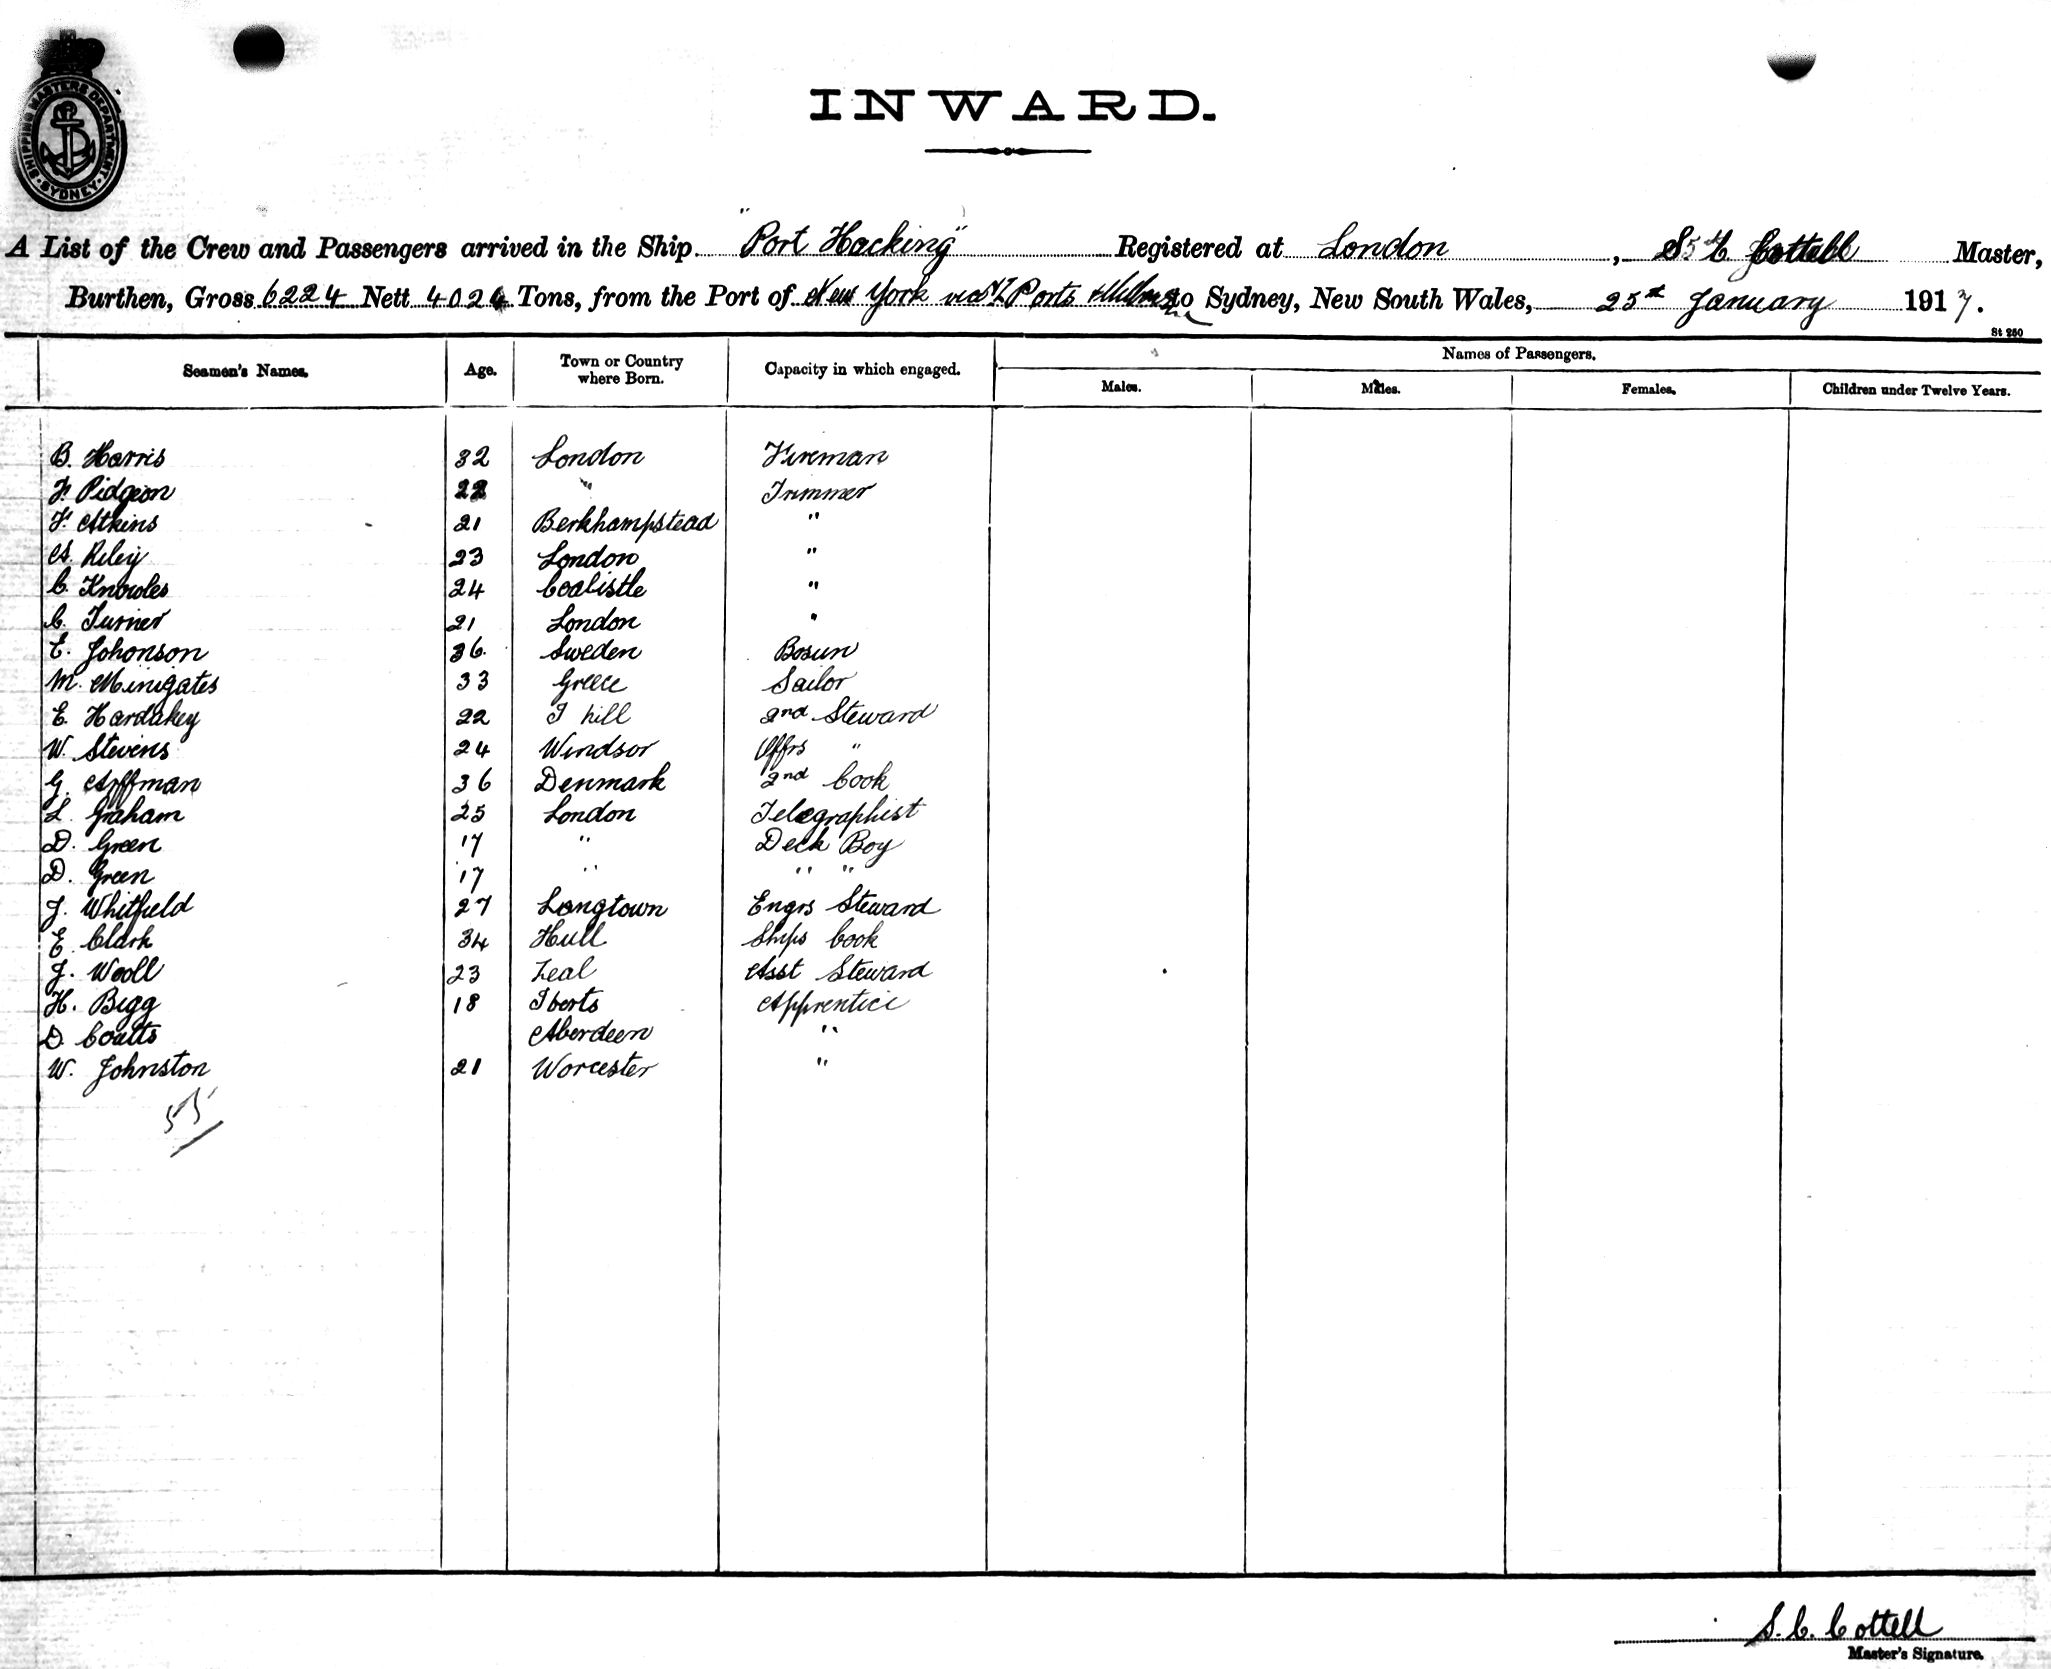 SHIPPING MASTERS DEPARTMENT
SYDNEY
INWARD.
A List of the Crew and Passengers arrived in the Ship "Port Hacking" Registered at London, S. C. Cottell Master,
Burthen, Gross 6224 Nett 4024 Tons, from the Port of New York via Ports to Sydney, New South Wales, 25th January 1917.
St 260
Seamen's Names. Age. Town or Country where Born. Capacity in which engaged. Names of Passengers.
Males. Males. Females. Children under Twelve Years.
B. Harris 32 London Fireman
F. Pidgeon 22 " Trimmer
F. Atkins 21 Berkhampstead "
A. Riley 23 London "
C. Knowles 24 Coalistle "
C. Turner 21 London "
E. Johonson 36 Sweden Bosun
M. Minigates 33 Greece Sailor
E. Hardakey 22 T hill 2nd Steward
W. Stevens 24 Windsor Offrs "
G. Arffman 36 Denmark 2nd Cook
L. Graham 25 London Telegraphist
D. Green 17 " Deck Boy
D. Green 17 " " "
J. Whitfield 27 Longtown Engrs Steward
E. Clark 34 Hull Ships Cook
J. Wooll 23 Zeal Asst Steward
H. Bigg 18 Apprentice
D. Coutts Aberdeen "
W. Johnston 21 Worcester "
55
S. C. Cottell
Master's Signature.